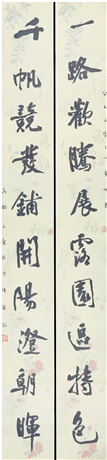 一路歡騰展露園區特色
千帆競發鋪開陽澄朝暉